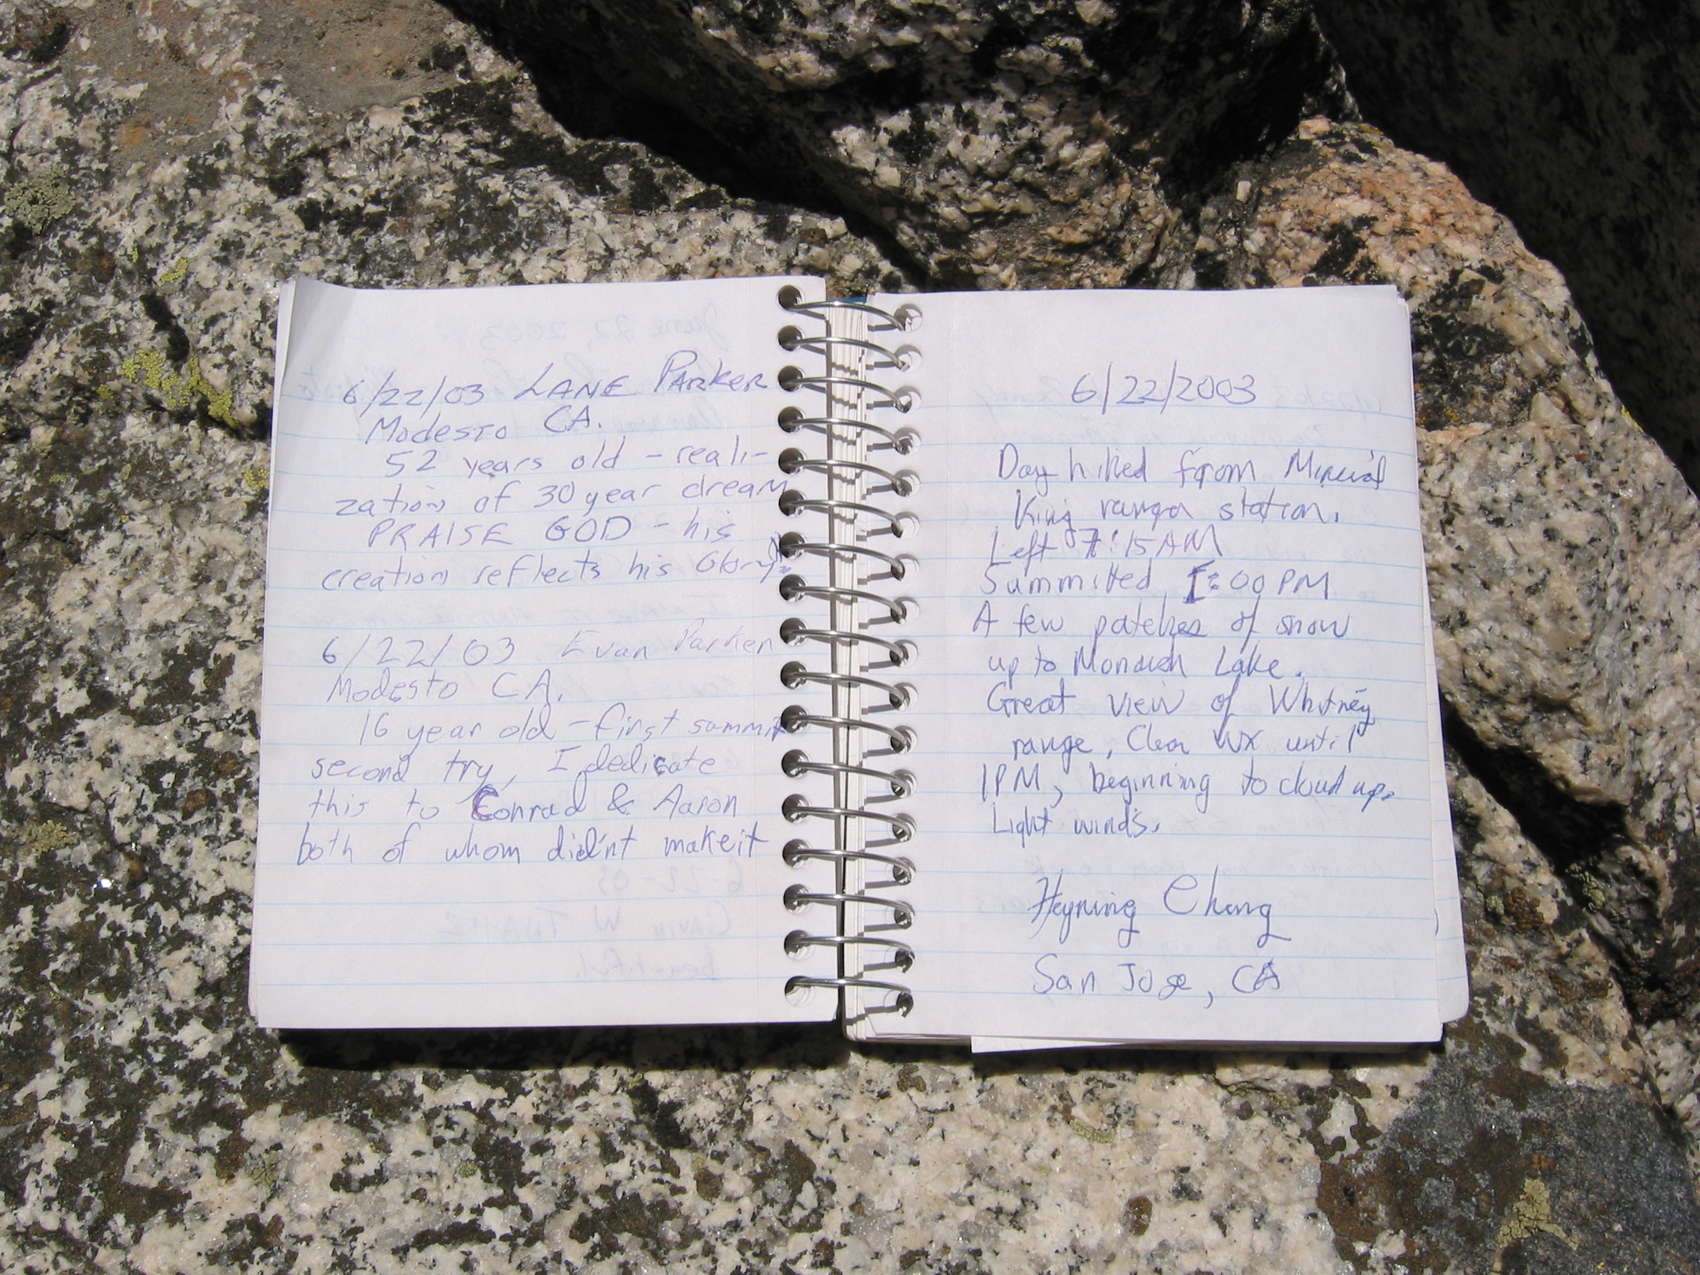 6/22/03 LANE PARKER
Modesto CA.
52 years old - reali-
zation of 30 year dream
PRAISE GOD - his
creation reflects his Glory!
6/22/03 Evan Parker
Modesto CA.
16 year old - first summit
second try, I dedicate
this to Conrad & Aaron
both of whom didn't make it
6/22/2003
Day hiked from Mineral
King ranger station.
Left 7:15AM
Summitted 1:00PM
A few patches of snow
up to Monarch Lake.
Great view of Whitney
range, Clear WX until
1PM, beginning to cloud up.
Light winds.
Heyning Cheng
San Jose, CA